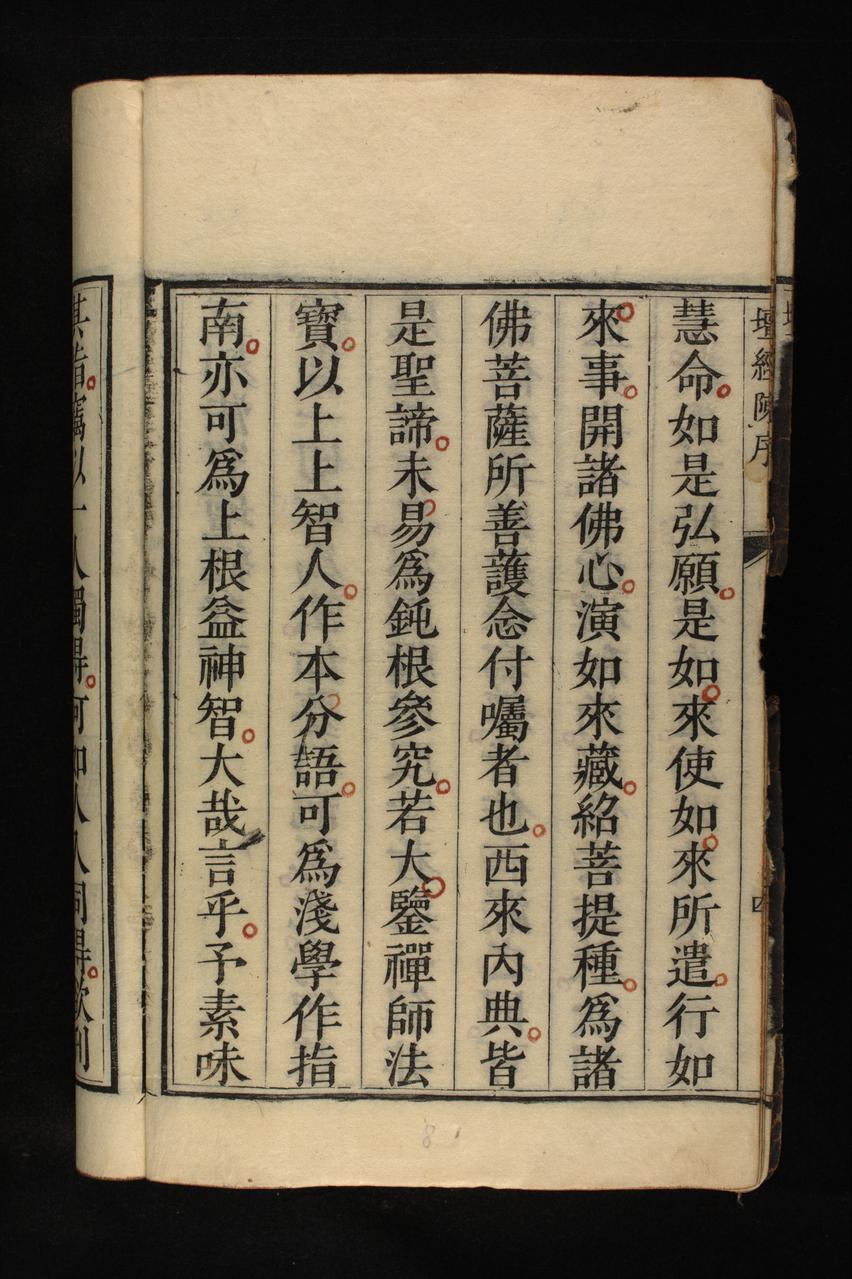 壇經陳序
四
慧命如是弘願是如來使如來所遣行如
來事開諸佛心演如來藏紹菩提種爲諸
佛菩薩所善護念付囑者也西來內典皆
是聖諦未易爲鈍根參究若大鑒禪師法
寶以上上智人作本分語可爲淺學作指
南亦可爲上根益神智大哉言乎予素味
其指竊以一人獨得何如人人同得欲刊
8